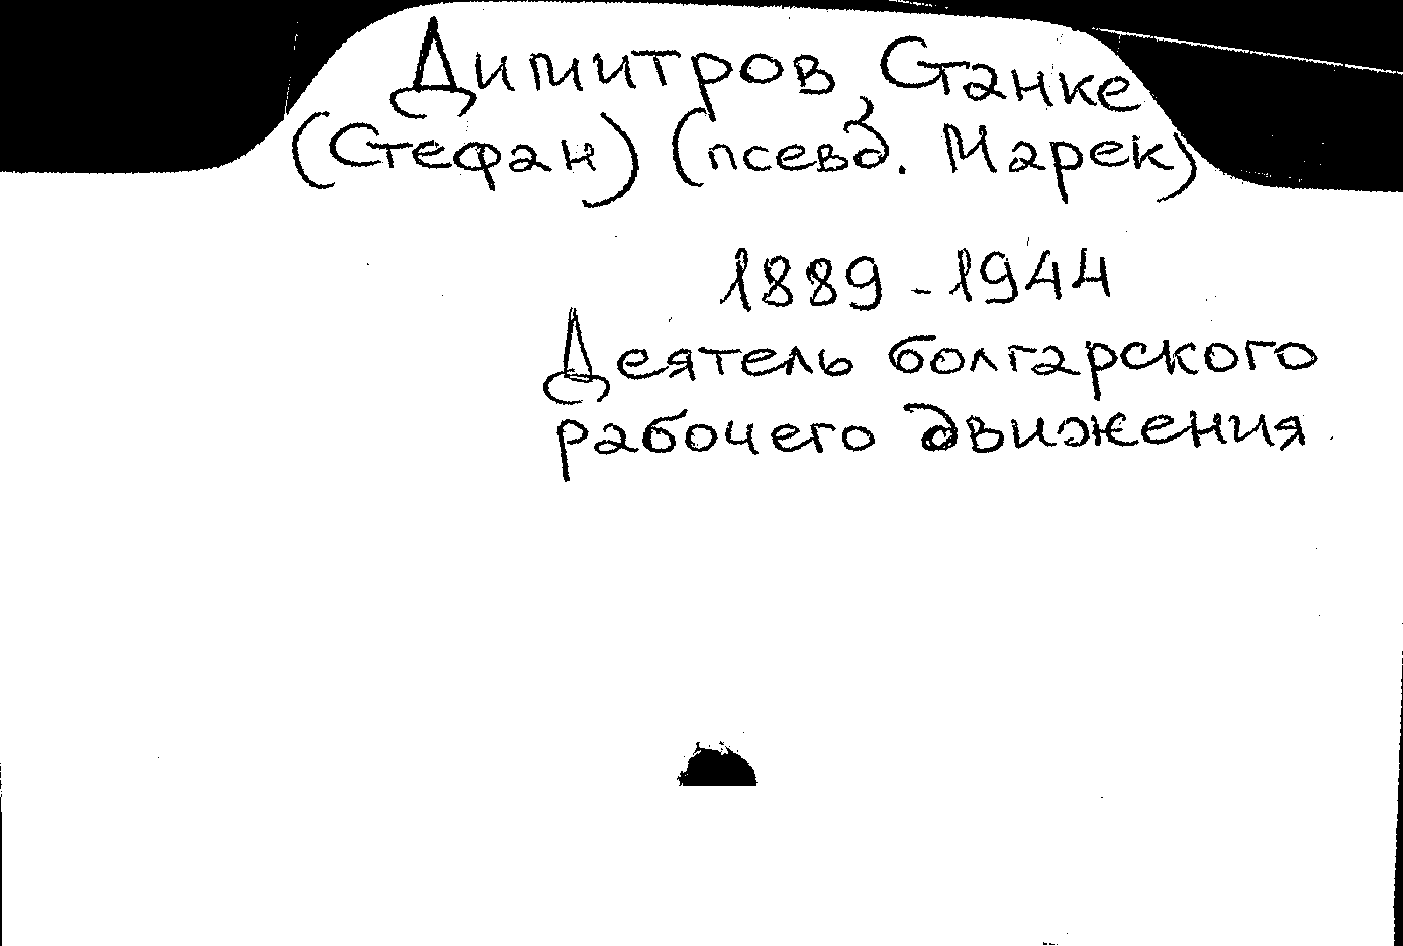 Димитров, Станке
(Стефан) (псевд. Марек)
1889-1944
Деятель болгарского
рабочего движения.